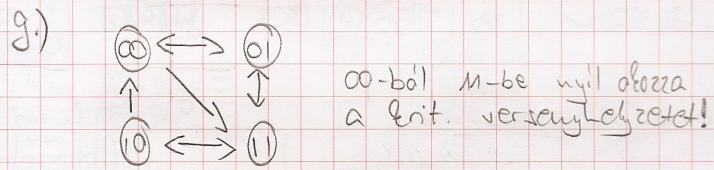 g.)
00 01
00-ból 11-be nyíl okozza
a krit. versenyhelyzetet!
10 11